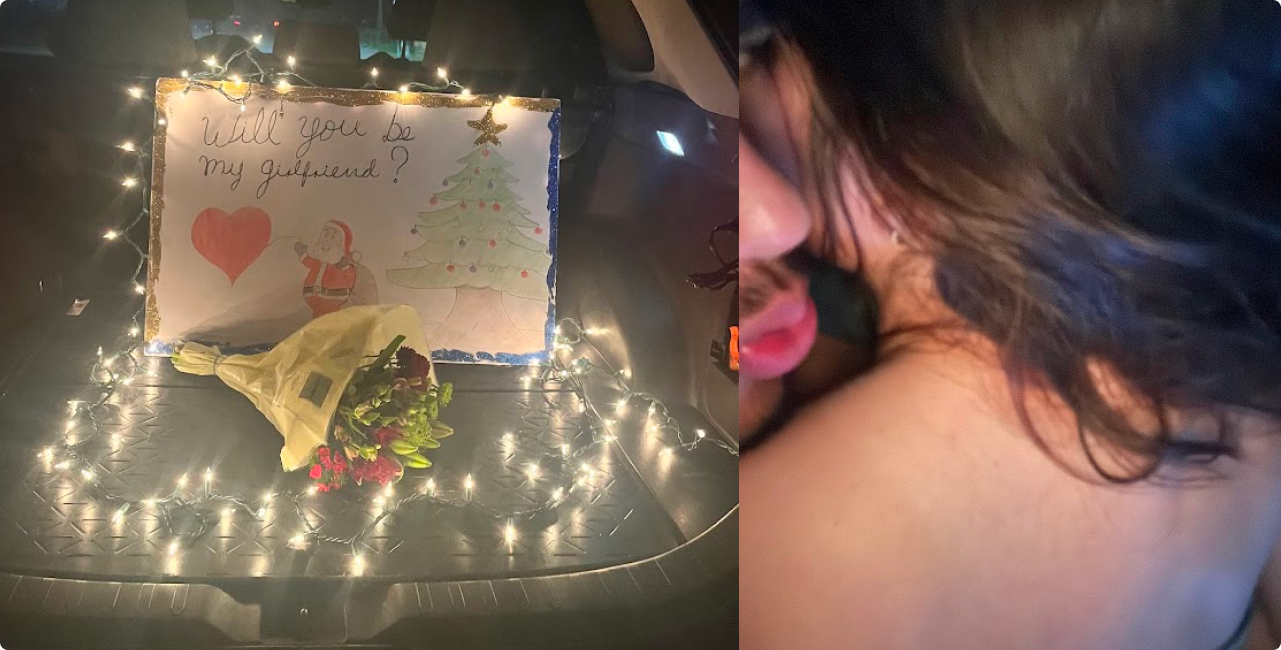 Will you be
my girlfriend?